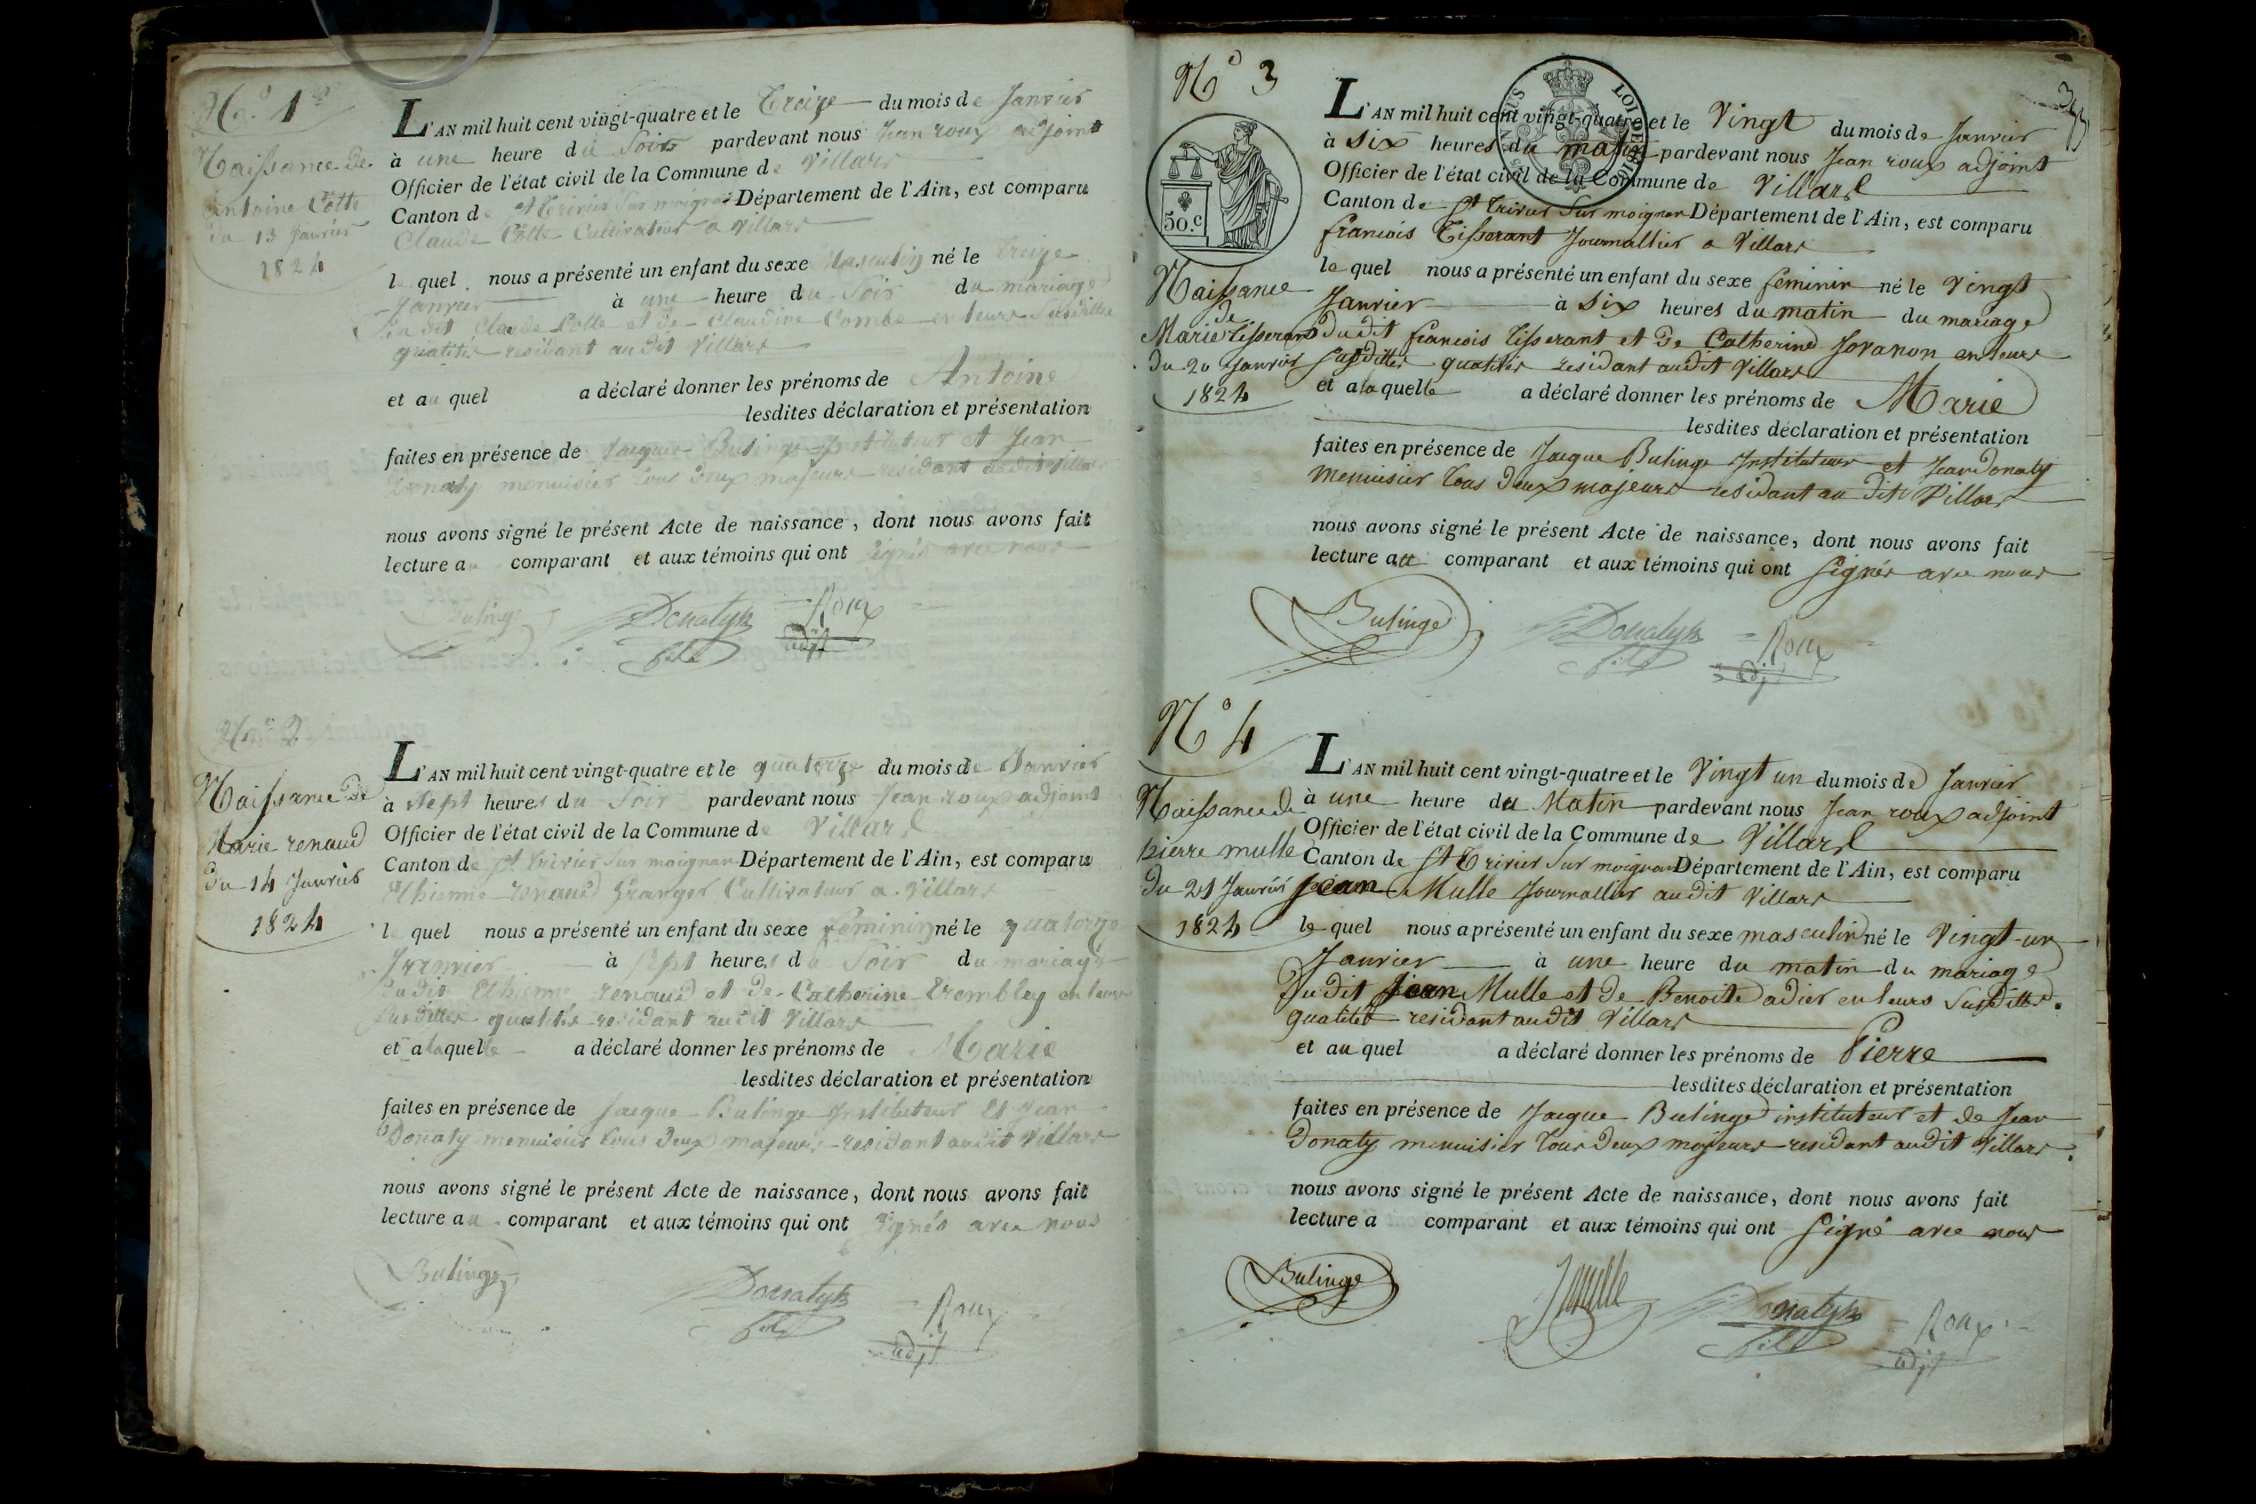 No. 1er
Naissance de
Antoine Cotte
du 13 Janvier
1824
L'AN mil huit cent vingt-quatre et le Treize du mois de Janvier
à une heure du Soir pardevant nous Jean roux adjoint
Officier de l'état civil de la Commune de Villars
Canton de St trivier Sur moignan Département de l'Ain, est comparu
Claude Cotte Cultivateur a Villars
le quel nous a présenté un enfant du sexe Masculin né le treize
Janvier à une heure du Soir du mariage
du dit Claude Cotte et de Claudine Combe en leurs Susdittes
qualités residant au dit Villars
et au quel a déclaré donner les prénoms de Antoine
lesdites déclaration et présentation
faites en présence de Jacque Bulinge Instituteur et Jean
Donaty menuisier tous deux majeurs residant audit Villars
nous avons signé le présent Acte de naissance, dont nous avons fait
lecture au comparant et aux témoins qui ont signés avec nous
Bulinge Donatyk Roux
fils adjt
No. 2
Naissance de
Marie renaud
du 14 Janvier
1824
L'AN mil huit cent vingt-quatre et le quatorze du mois de Janvier
à Sept heures du Soir pardevant nous Jean roux adjoint
Officier de l'état civil de la Commune de Villars
Canton de St trivier Sur moignan Département de l'Ain, est comparu
Ethienne renaud Granger Cultivateur a Villars
le quel nous a présenté un enfant du sexe feminin né le quatorze
Janvier à Sept heures du Soir du mariage
du dit Ethienne renaud et de Catherine trembley en leurs
Susdittes qualités residant audit Villars
et a laquelle a déclaré donner les prénoms de Marie
lesdites déclaration et présentation
faites en présence de Jacque Bulinge Instituteur Et Jean
Donaty menuisier tous deux majeurs residant audit Villars
nous avons signé le présent Acte de naissance, dont nous avons fait
lecture au comparant et aux témoins qui ont signés avec nous
Bulinge Donatyk Roux
fils adjt
No 3
50.c
Naissance
de
Marie tisserant
du 20 Janvier
1824
L'AN mil huit cent vingt-quatre et le Vingt du mois de Janvier
à six heures du matin pardevant nous Jean roux adjoint
Officier de l'état civil de la Commune de Villars
Canton de St trivier Sur moignan Département de l'Ain, est comparu
francois Tisserant Journallier a Villars
le quel nous a présenté un enfant du sexe feminin né le Vingt
Janvier à six heures du matin du mariage
du dit francois tisserant et de Catherine Jovanon en leurs
susdittes qualités residant audit Villars
et a la quelle a déclaré donner les prénoms de Marie
lesdites déclaration et présentation
faites en présence de Jacque Bulinge Instituteur et Jean Donaty
menuisier tous deux majeurs residant au dit Villars
nous avons signé le présent Acte de naissance, dont nous avons fait
lecture au comparant et aux témoins qui ont signés avec nous
Bulinge Donatyk Roux
fils adjt
No 4
Naissance de
pierre mulle
du 21 Janvier
1824
L'AN mil huit cent vingt-quatre et le Vingt un du mois de Janvier
à une heure du Matin pardevant nous Jean roux adjoint
Officier de l'état civil de la Commune de Villars
Canton de St Trivier Sur moignan Département de l'Ain, est comparu
Jean Mulle Journallier audit Villars
le quel nous a présenté un enfant du sexe masculin né le Vingt-un
Janvier à une heure du matin du mariage
du dit Jean Mulle et de Benoite adier en leurs Susdittes
qualités residant audit Villars
et au quel a déclaré donner les prénoms de Pierre
lesdites déclaration et présentation
faites en présence de Jacque Bulinge instituteur et de Jean
Donaty menuisier tous deux majeurs residant audit Villars.
nous avons signé le présent Acte de naissance, dont nous avons fait
lecture a comparant et aux témoins qui ont signé avec nous
Bulinge Jmulle Donatyk Roux
fils adjt